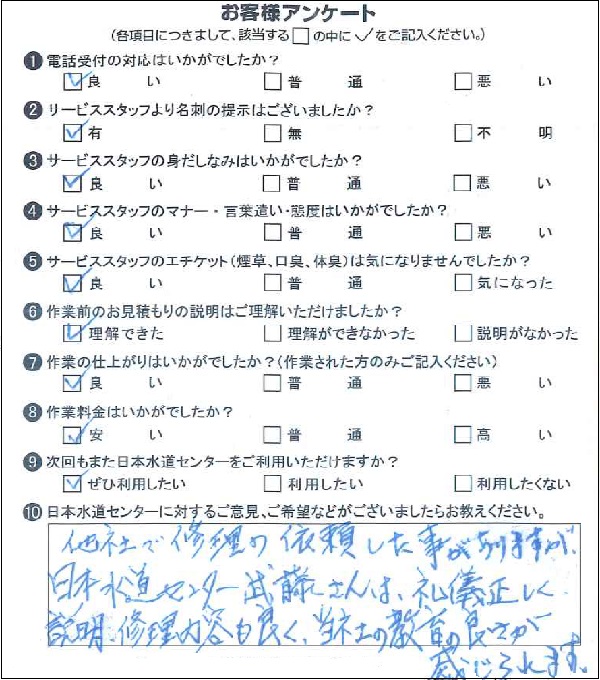 お客様アンケート
(各項目につきまして、該当する□の中に✓をご記入ください。)
❶電話受付の対応はいかがでしたか?
☑良い □普通 □悪い
❷サービススタッフより名刺の提示はございましたか?
☑有 □無 □不明
❸サービススタッフの身だしなみはいかがでしたか?
☑良い □普通 □悪い
❹サービススタッフのマナー・言葉遣い・態度はいかがでしたか?
☑良い □普通 □悪い
❺サービススタッフのエチケット(煙草、口臭、体臭)は気になりませんでしたか?
☑良い □普通 □気になった
❻作業前のお見積もりの説明はご理解いただけましたか?
☑理解できた □理解ができなかった □説明がなかった
❼作業の仕上がりはいかがでしたか?(作業された方のみご記入ください)
☑良い □普通 □悪い
❽作業料金はいかがでしたか?
☑安い □普通 □高い
❾次回もまた日本水道センターをご利用いただけますか?
☑ぜひ利用したい □利用したい □利用したくない
❿日本水道センターに対するご意見、ご希望などがございましたらお教えください。
他社で修理の依頼した事がありますが、
日本水道センター武藤さんは、礼儀正しく
説明、修理内容も良く、当社の教育の良さが
感じられます。